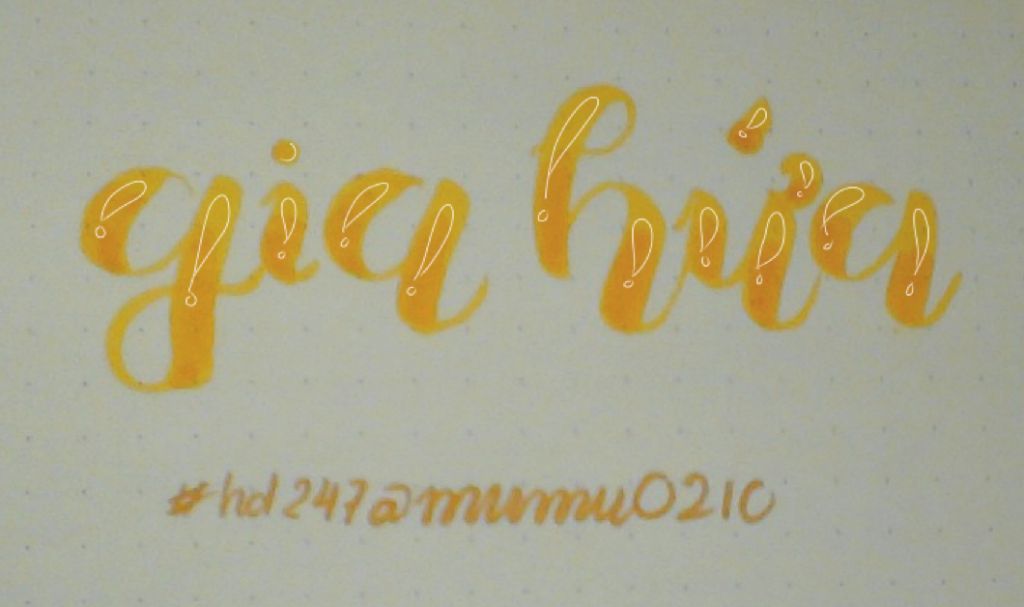 gia hứa
#hd247@mumu0210